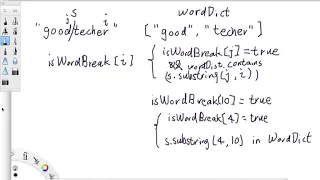 S
wordDict
j
i
"good/techer"
["good", "techer"]
isWordBreak[i]
{ isWordBreak[j] = true
&& wordDict contains
(s.substring(j, i))
isWordBreak[10] = true
{ isWordBreak[4] = true
s.substring[4, 10) in WordDict